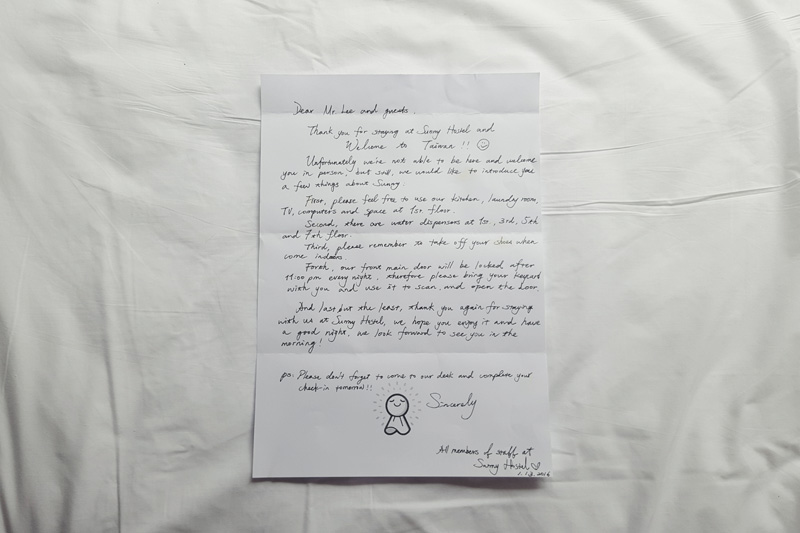 Dear Mr. Lee and guests,
Thank you for staying at Sunny Hostel and
Welcome to Taiwan !! ☺
Unfortunately we're not able to be here and welcome
you in person, but still, we would like to introduce you
a few things about Sunny
First, please feel free to use our kitchen, laundry room,
TV, computers and space at 1st floor.
Second, there are water dispensers at 1st, 3rd, 5th
and 7th floor.
Third, please remember to take off your shoes when
come indoors.
Forth, our front main door will be locked after
11:00 pm every night, therefore please bring your keycard
with you and use it to scan, and open the door.
And last but the least, thank you again for staying
with us at Sunny Hostel, we hope you enjoy it and have
a good night, we look forward to see you in the
morning!
ps: Please don't forget to come to our desk and complete your
check-in tomorrow!!
Sincerely
All members of staff at
Sunny Hostel ♡
2016